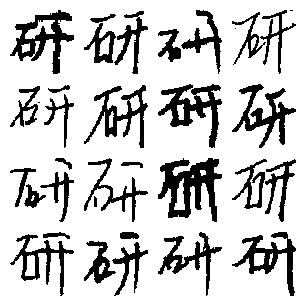 研研研研
研研研研
研研研研
研研研研